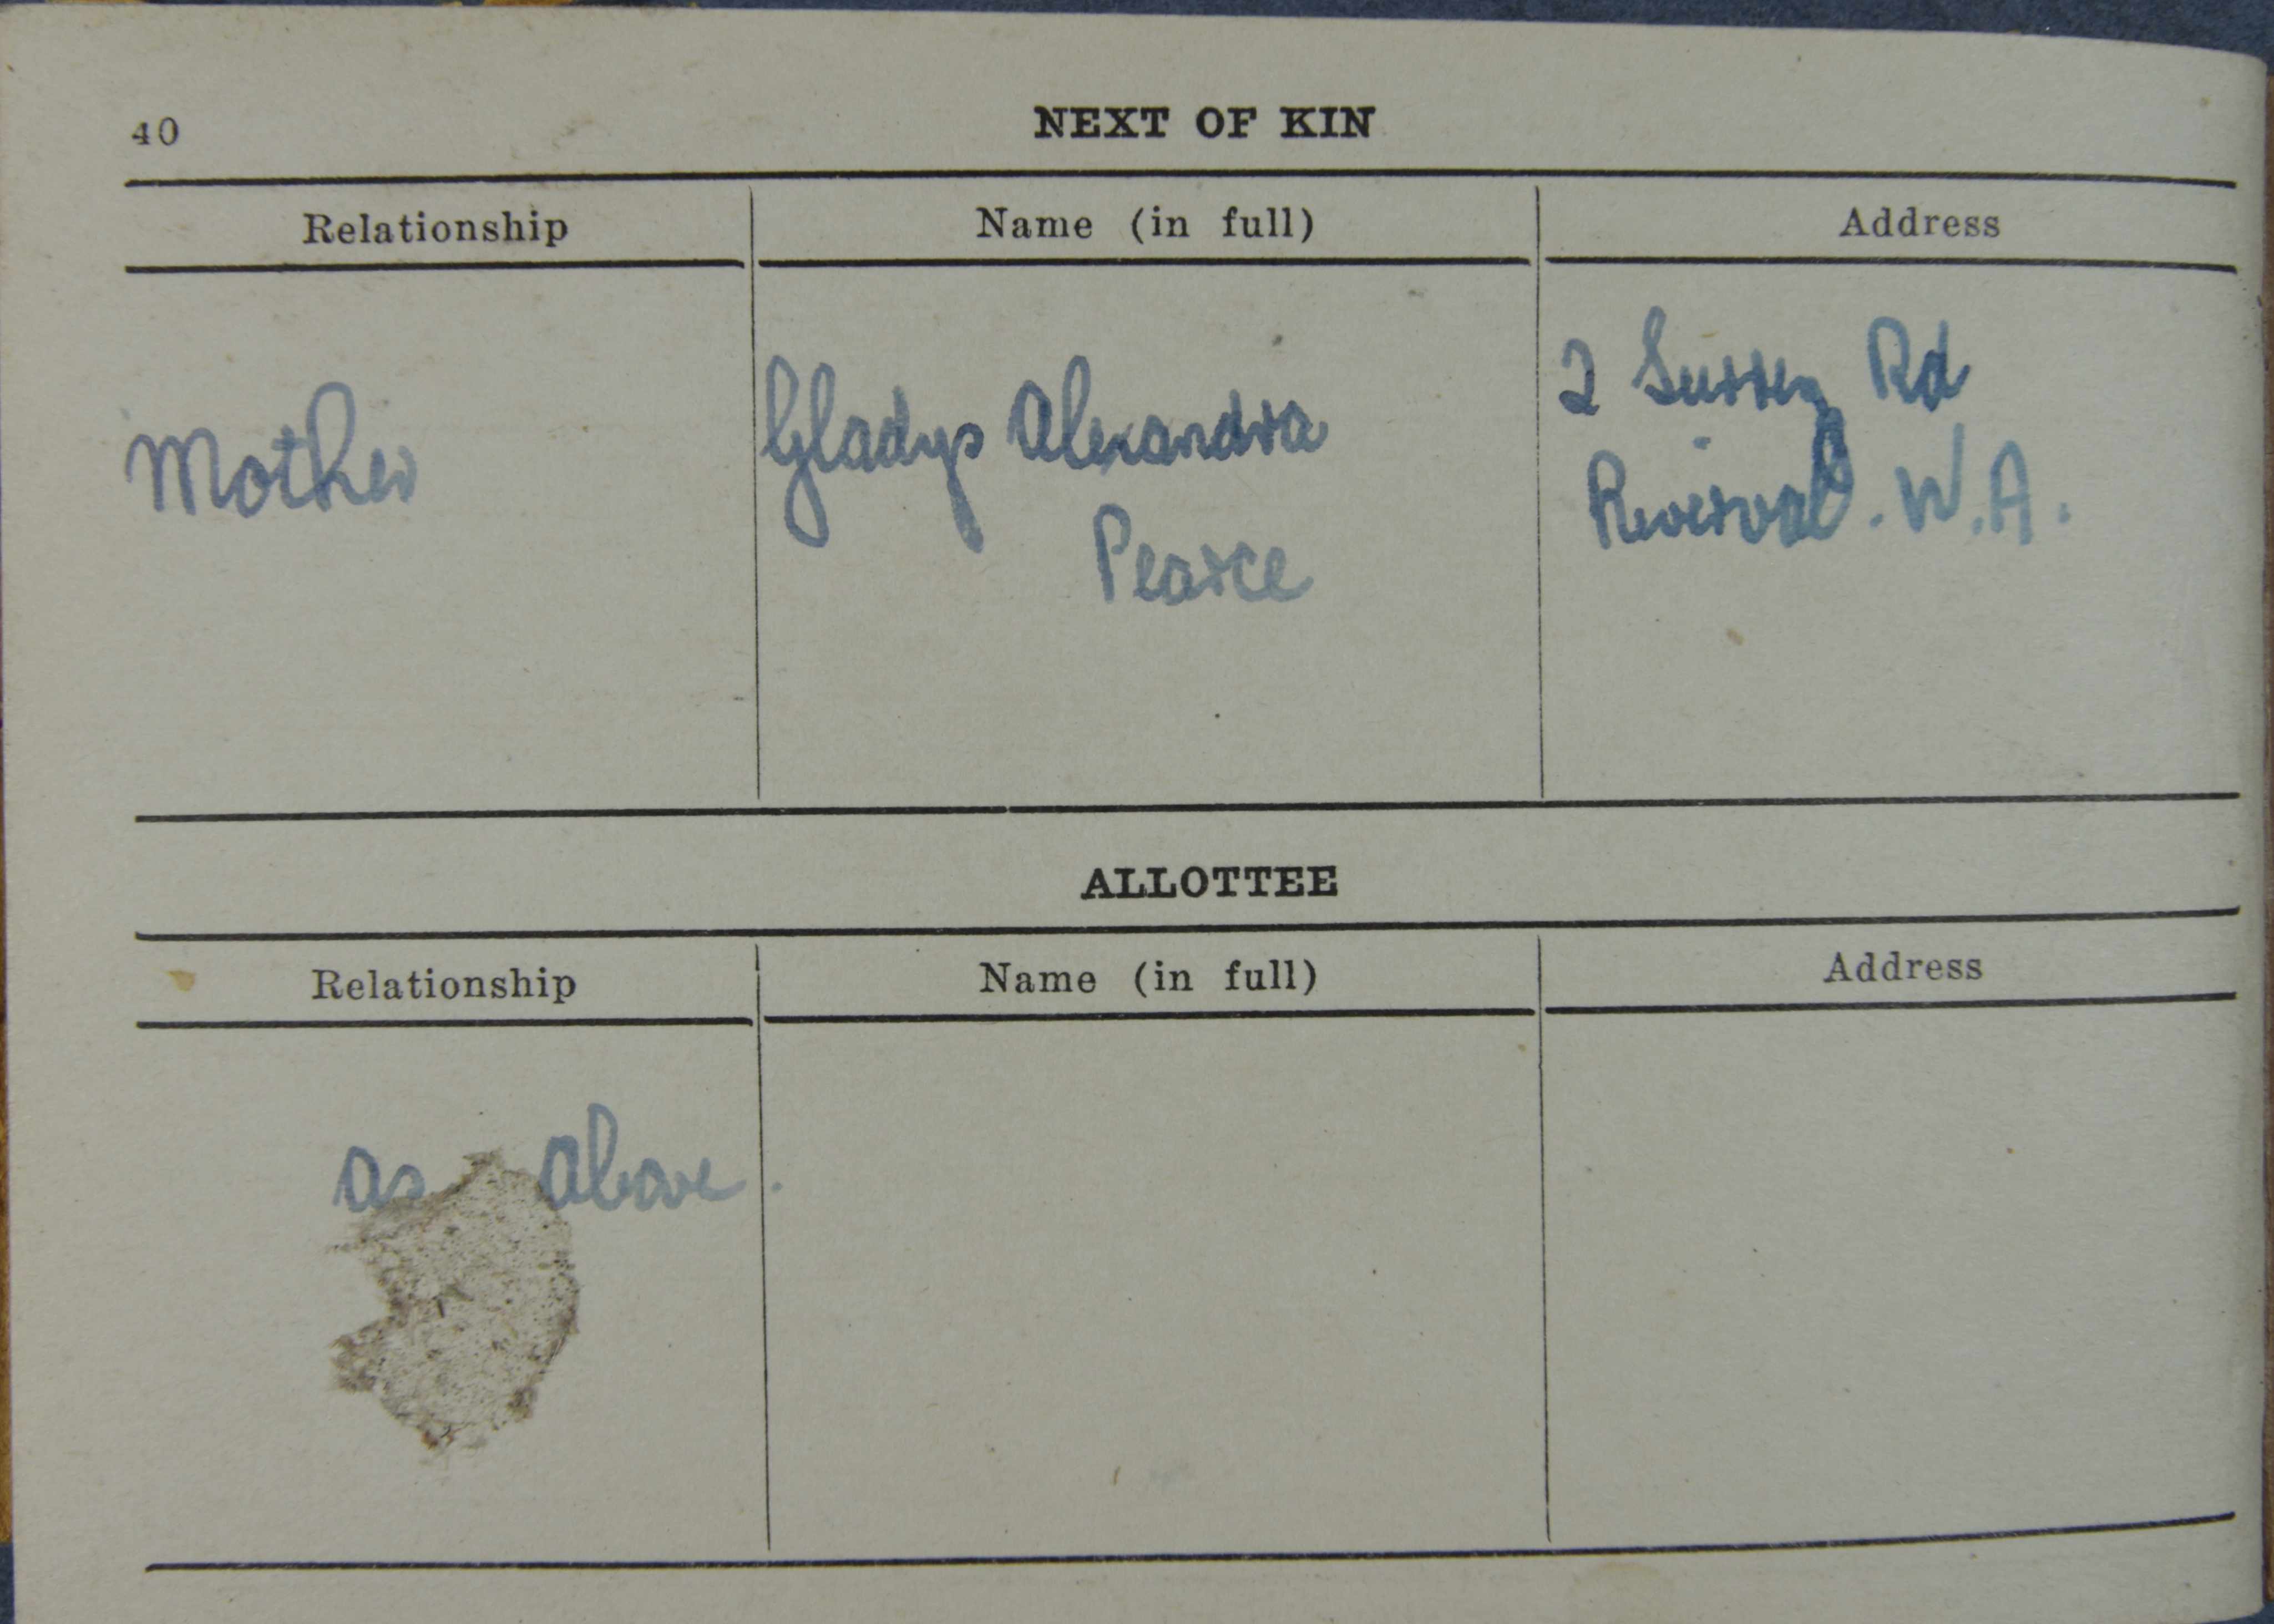 40
NEXT OF KIN
Relationship Name (in full) Address
Mother Gladys Alexandra 2 Sussex Rd
Pearce Riverval. W.A.
ALLOTTEE
Relationship Name (in full) Address
as above.